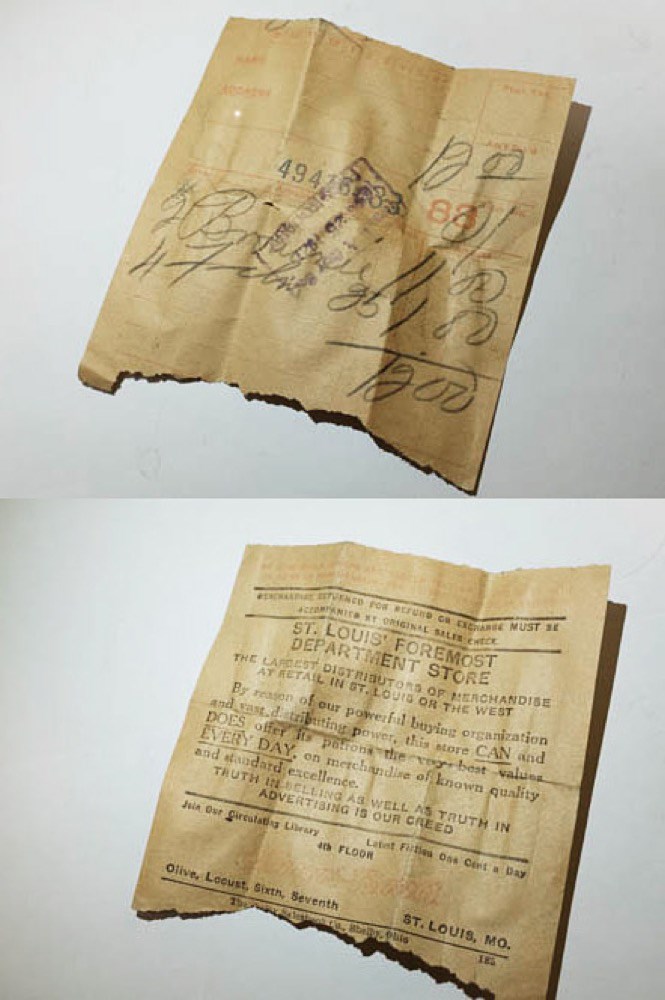 NAME
ADDRESS
12 00
4941
88
11 00
4
1.00
12.00
MERCHANDISE RETURNED FOR REFUND OR EXCHANGE MUST BE
ACCOMPANIED BY ORIGINAL SALES CHECK.
ST. LOUIS' FOREMOST
DEPARTMENT STORE
THE LARGEST DISTRIBUTORS OF MERCHANDISE
AT RETAIL IN ST. LOUIS OR THE WEST
By reason of our powerful buying organization
and vast distributing power, this store CAN and
DOES offer its patrons the very best values
EVERY DAY, on merchandise of known quality
and standard excellence.
TRUTH IN SELLING AS WELL AS TRUTH IN
ADVERTISING IS OUR CREED
Join Our Circulating Library Latest Fiction One Cent a Day
4th FLOOR
Olive, Locust, Sixth, Seventh ST. LOUIS, MO.
The Salesbook Co., Shelby, Ohio 185